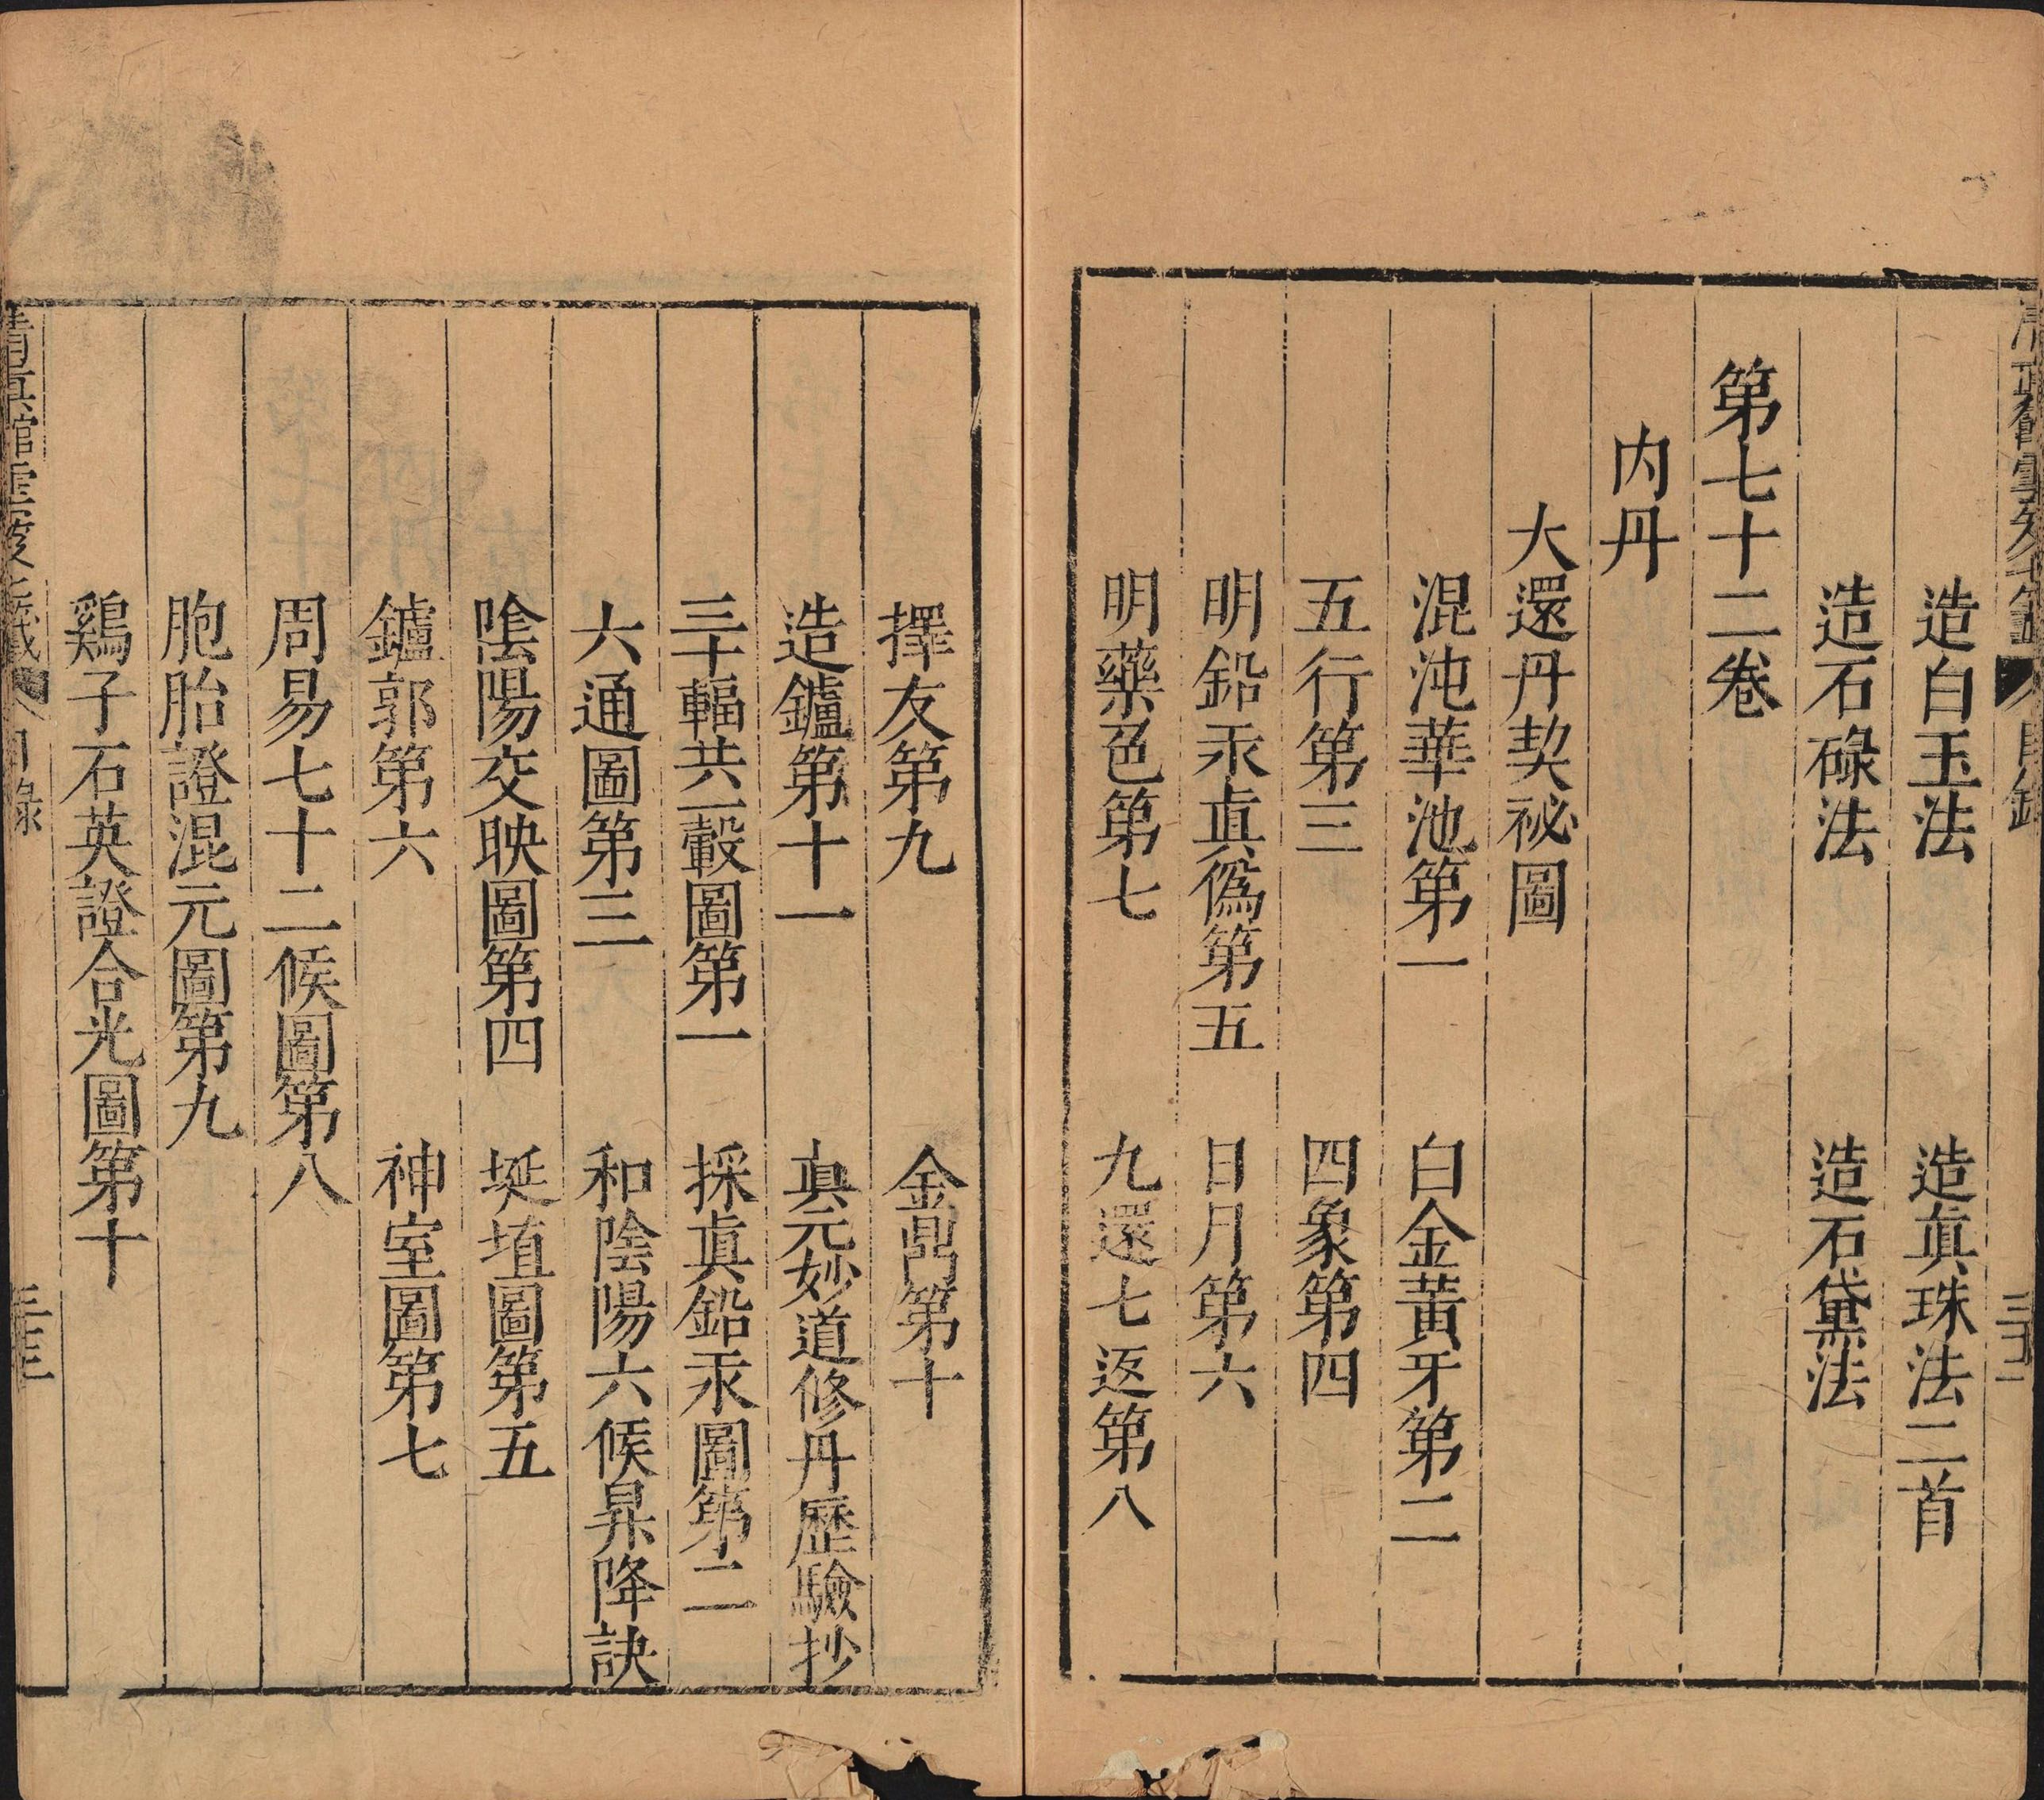 造白玉法 造眞珠法二首
造石碌法 造石黛法
第七十二卷
内丹
大還丹契祕圖
混沌華池第一 白金黃牙第二
五行第三 四象第四
明鉛汞眞僞第五 日月第六
明藥色第七 九還七返第八
擇友第九 金鼎第十
造鑪第十一 眞元妙道修丹歷驗抄
三十輻共一轂圖第一 採眞鉛汞圖第二
六通圖第三 和陰陽六候昇降訣
陰陽交映圖第四 埏埴圖第五
鑪郭第六 神室圖第七
周易七十二候圖第八
胞胎證混元圖第九
鷄子石英證合光圖第十
目錄